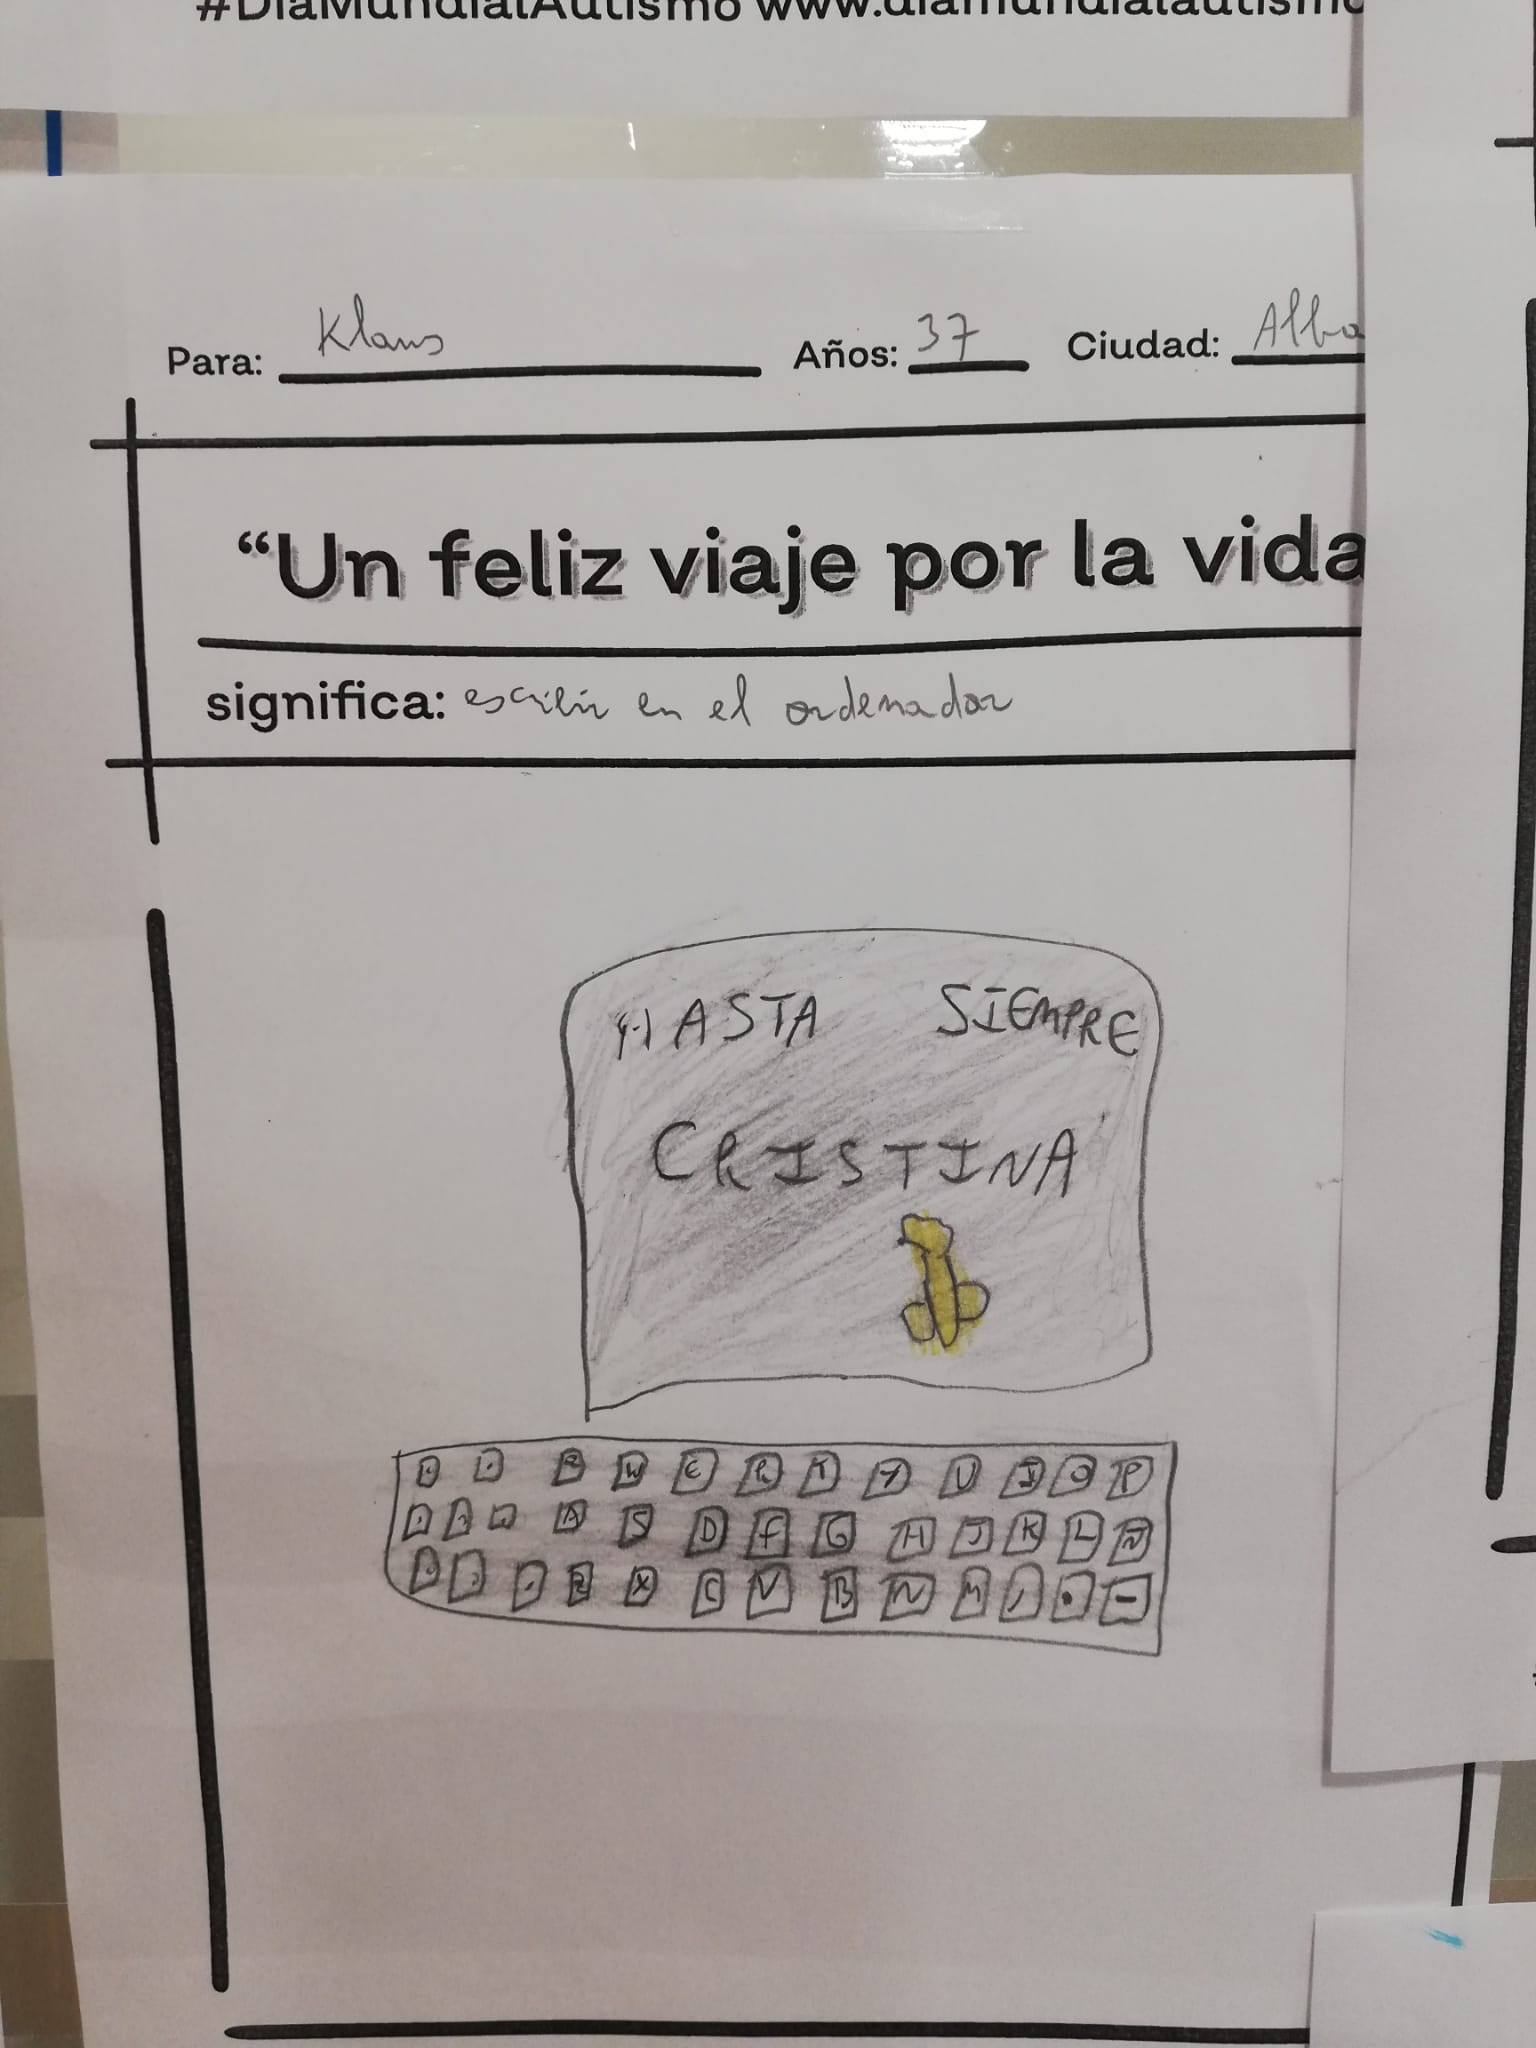 #DíaMundialAutismo www.diamundialautismo
Para: Klaus Años: 37 Ciudad: Alba
“Un feliz viaje por la vida
significa: escribir en el ordenador
HASTA SIEMPRE
CRISTINA
W E R T Y U I O P
A S D F G H J K L Ñ
Z X C V B N M , . -